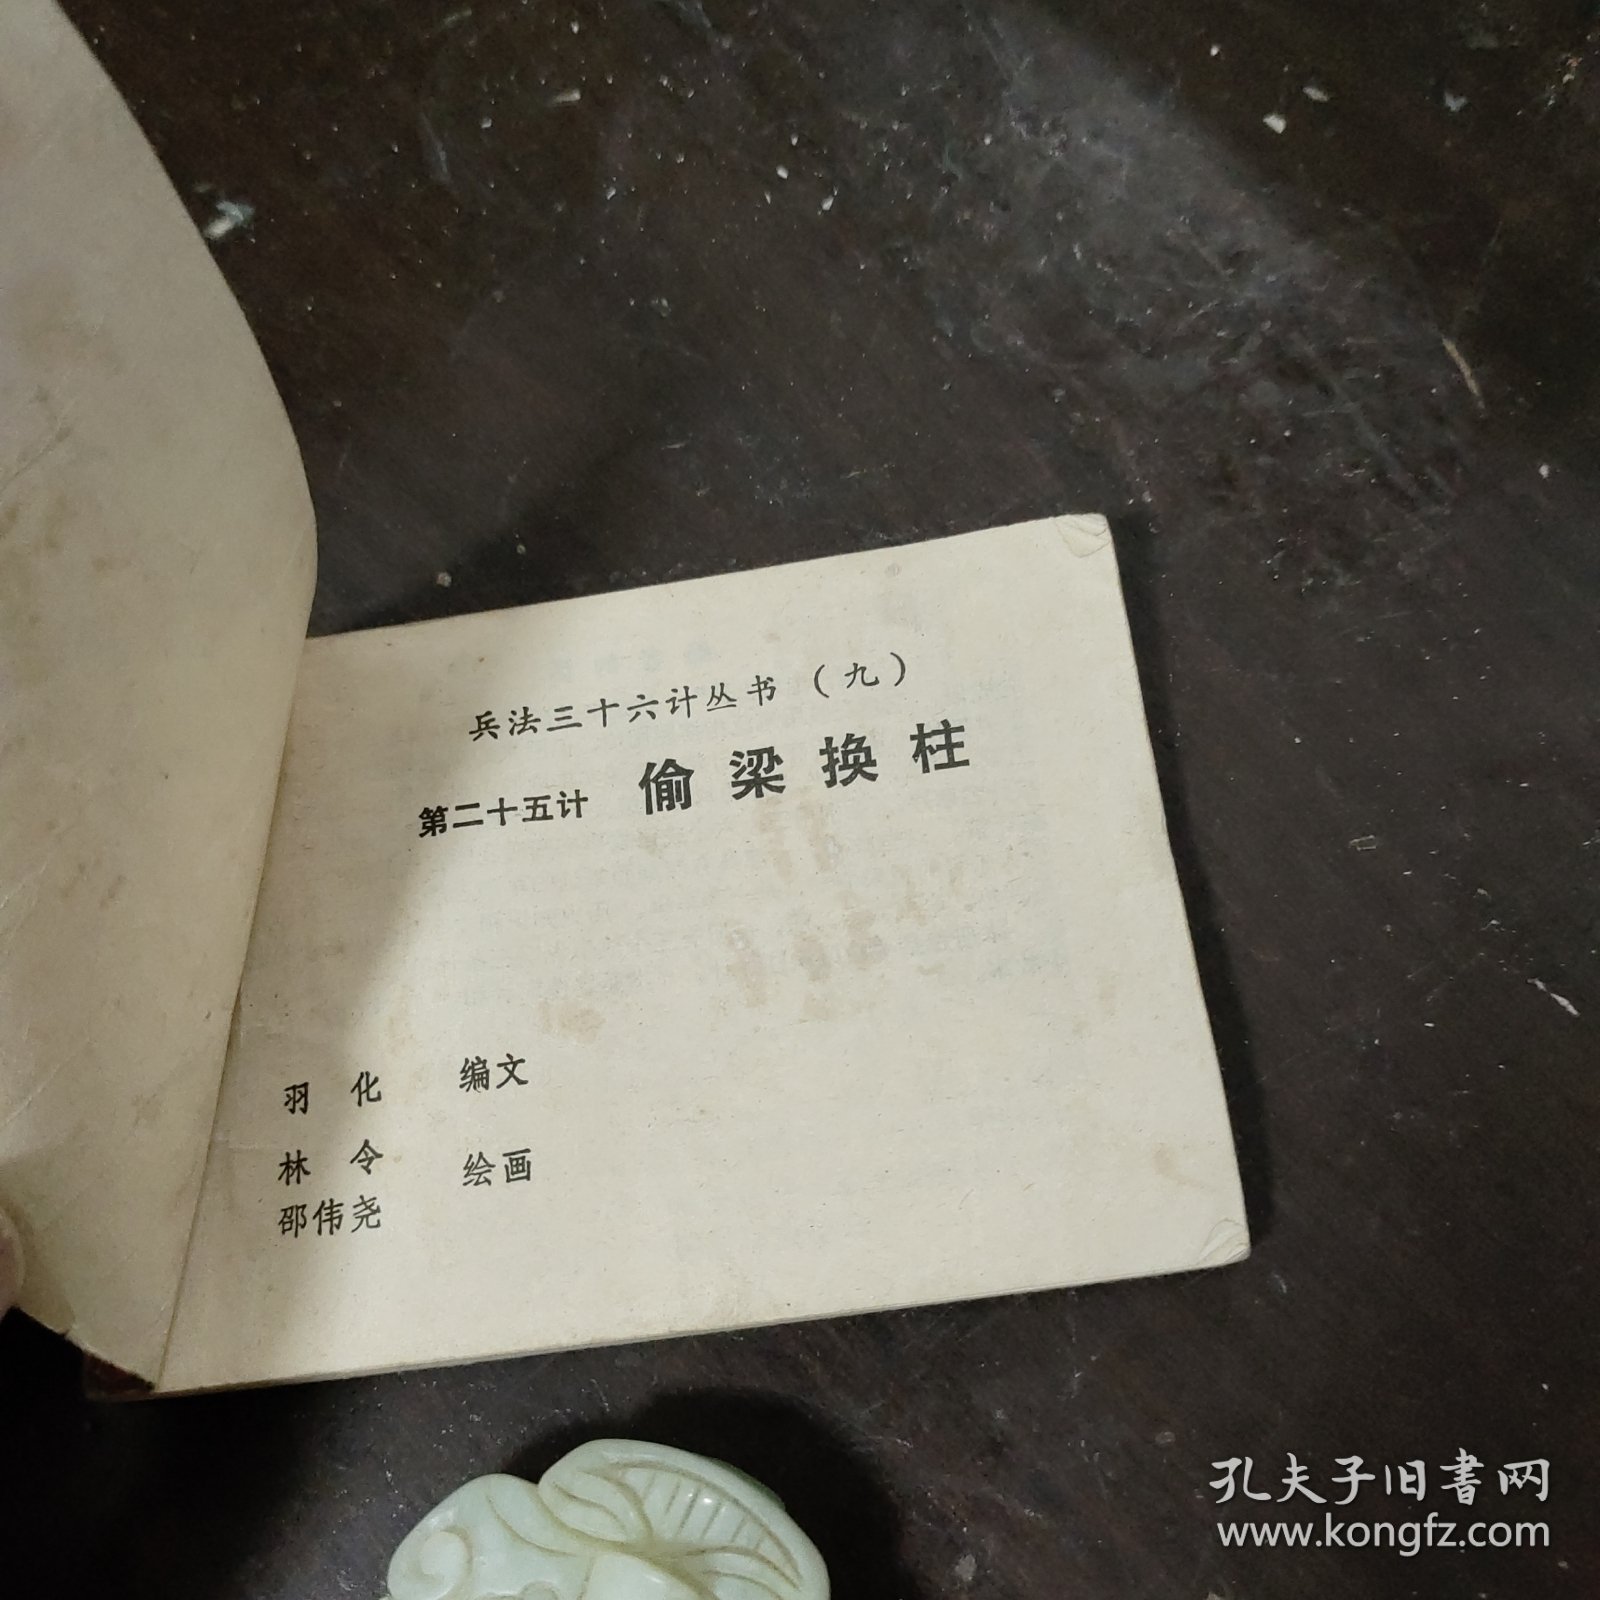 兵法三十六计丛书（九）
第二十五计 偷梁换柱
羽化 编文
林令 绘画
邵伟尧
孔夫子旧書网
www.kongfz.com